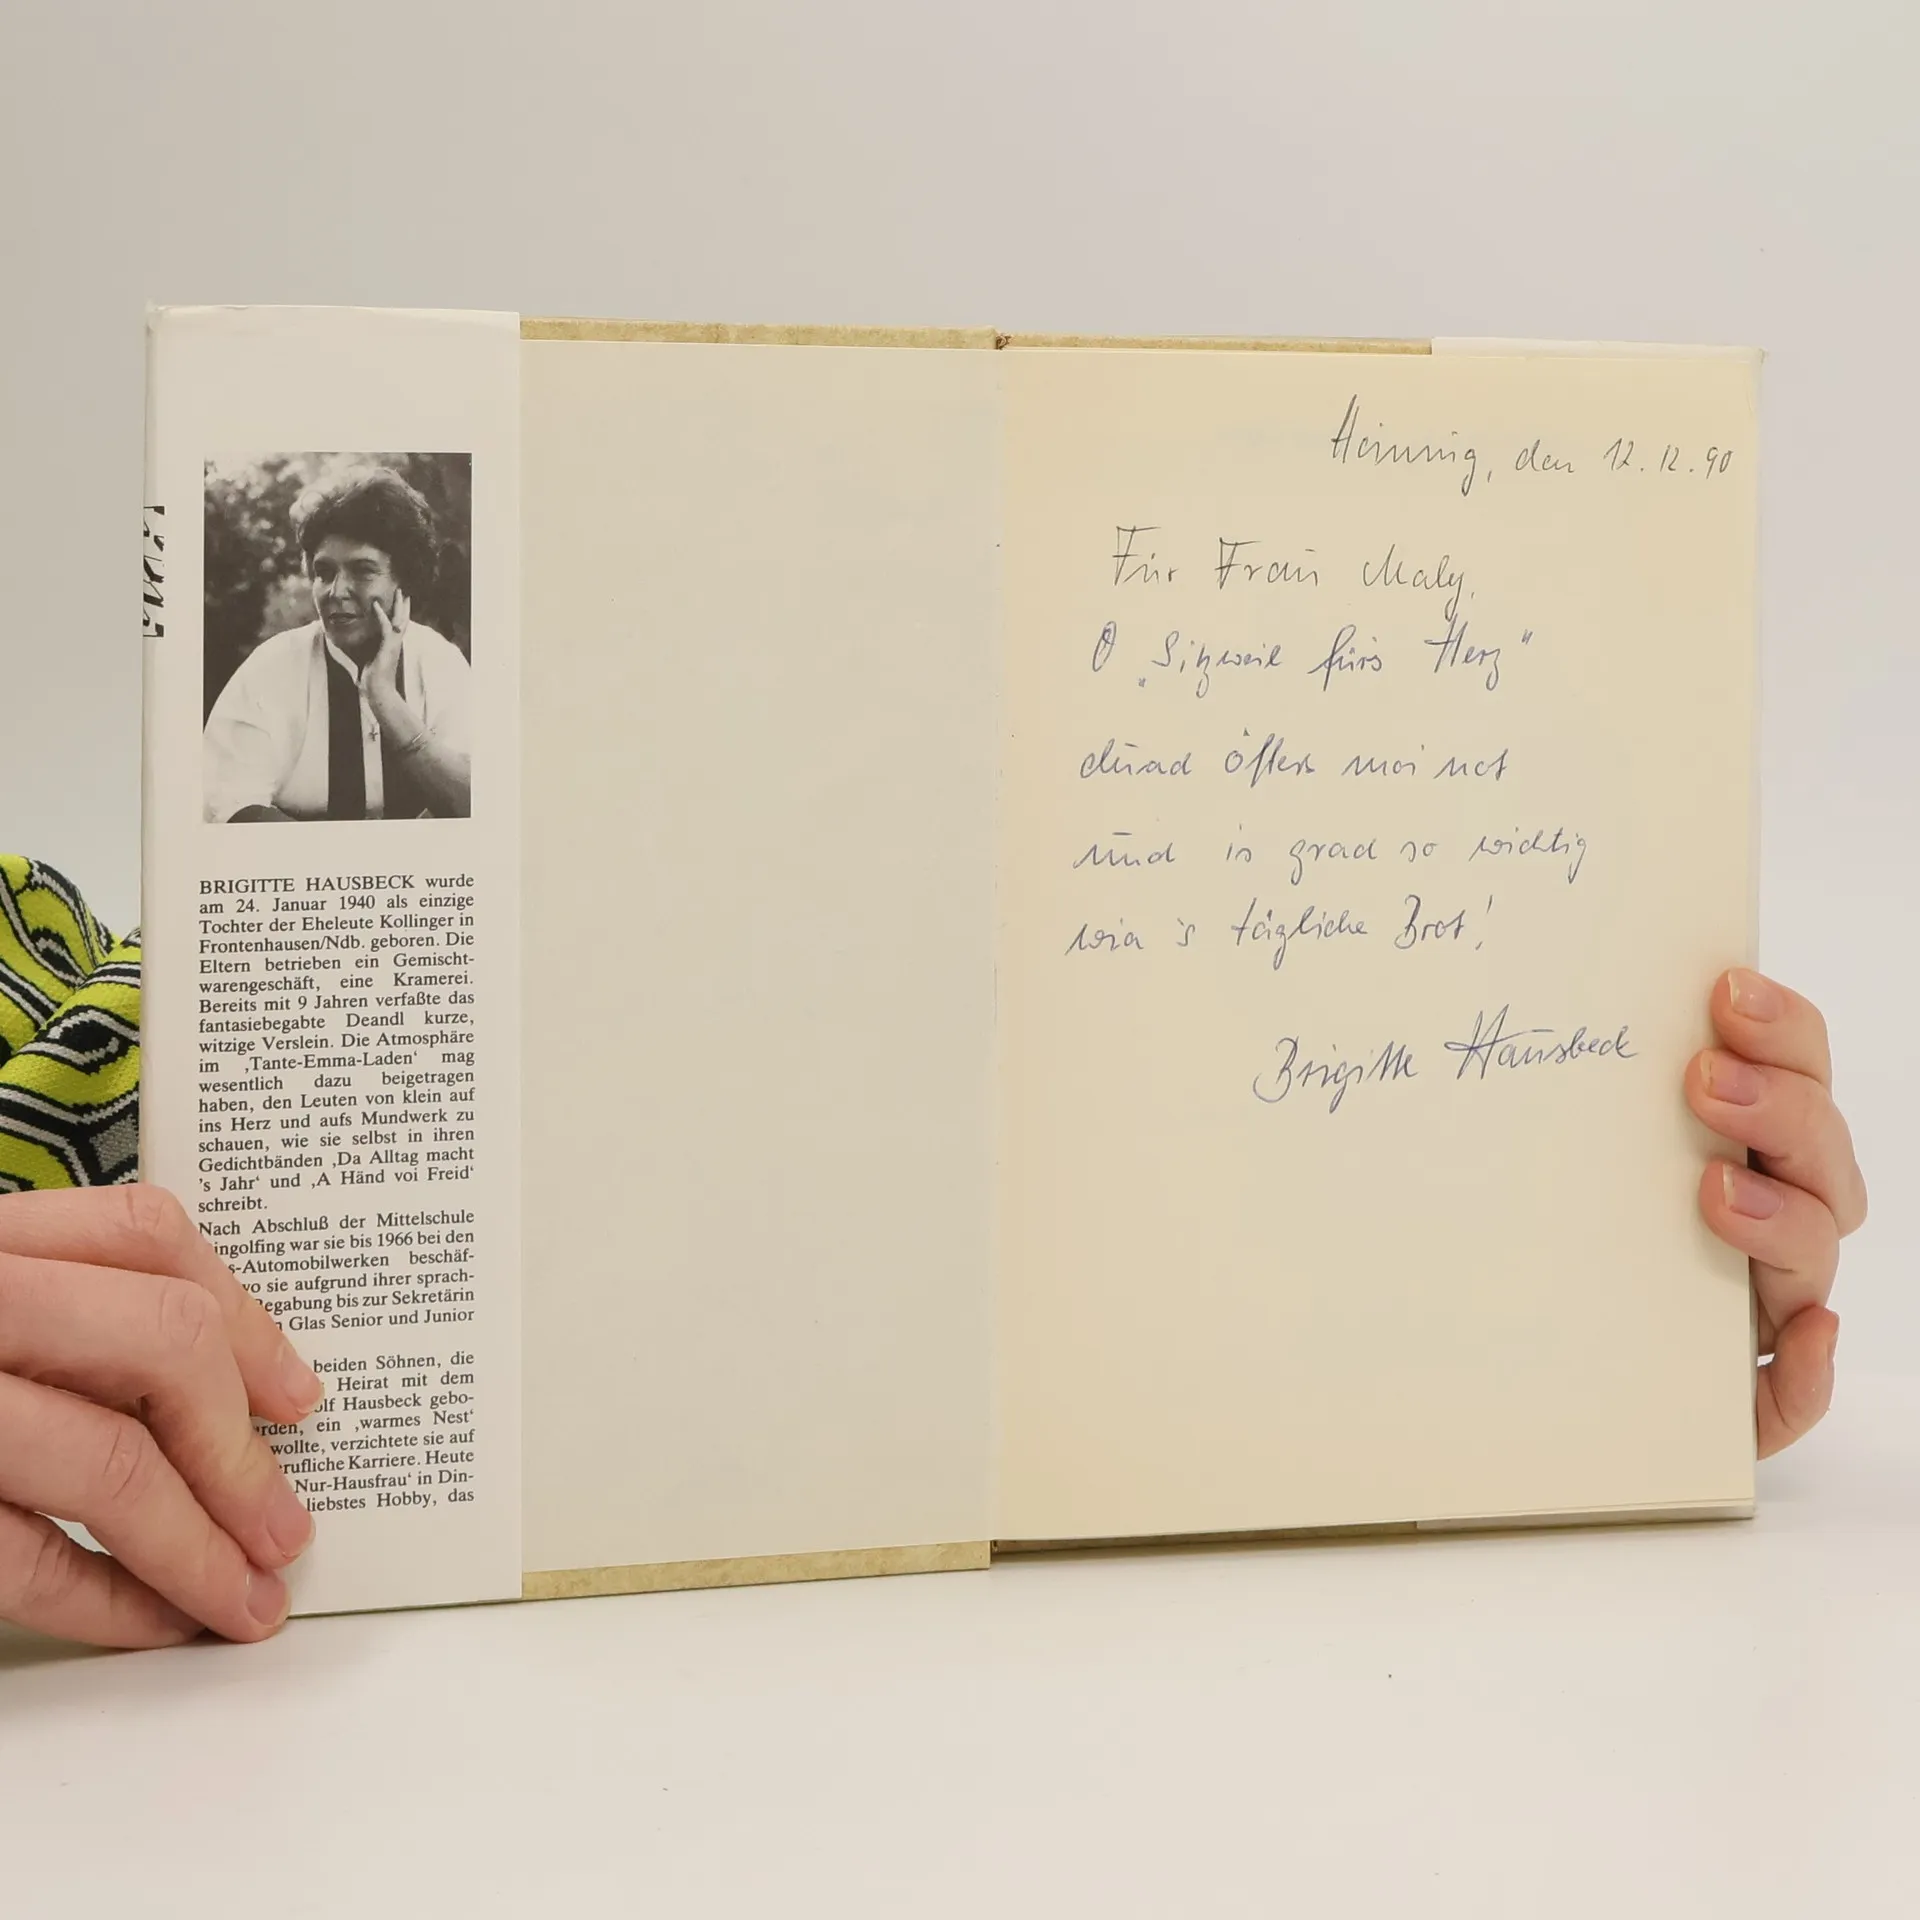 BRIGITTE HAUSBECK wurde
am 24. Januar 1940 als einzige
Tochter der Eheleute Kollinger in
Frontenhausen/Ndb. geboren. Die
Eltern betrieben ein Gemischt-
warengeschäft, eine Kramerei.
Bereits mit 9 Jahren verfaßte das
fantasiebegabte Deandl kurze,
witzige Verslein. Die Atmosphäre
im ‚Tante-Emma-Laden‘ mag
wesentlich dazu beigetragen
haben, den Leuten von klein auf
ins Herz und aufs Mundwerk zu
schauen, wie sie selbst in ihren
Gedichtbänden ‚Da Alltag macht
's Jahr‘ und ‚A Händ voi Freid‘
schreibt.
Nach Abschluß der Mittelschule
ingolfing war sie bis 1966 bei den
s-Automobilwerken beschäf-
wo sie aufgrund ihrer sprach-
Begabung bis zur Sekretärin
Glas Senior und Junior
beiden Söhnen, die
Heirat mit dem
olf Hausbeck gebo-
rden, ein ‚warmes Nest‘
wollte, verzichtete sie auf
rufliche Karriere. Heute
Nur-Hausfrau‘ in Din-
liebstes Hobby, das
den 12.12.90
Für Frau Maly,
"Sitzweil fürs Herz"
duad öfters moi not
und is grad so wichtig
wia 's tägliche Brot!
Brigitte Hausbeck